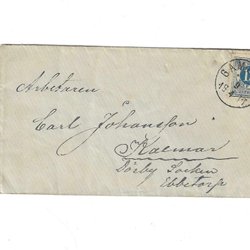 Arbetaren
Carl Johansson
Kalmar
Dörby Socken
Ebbetorp